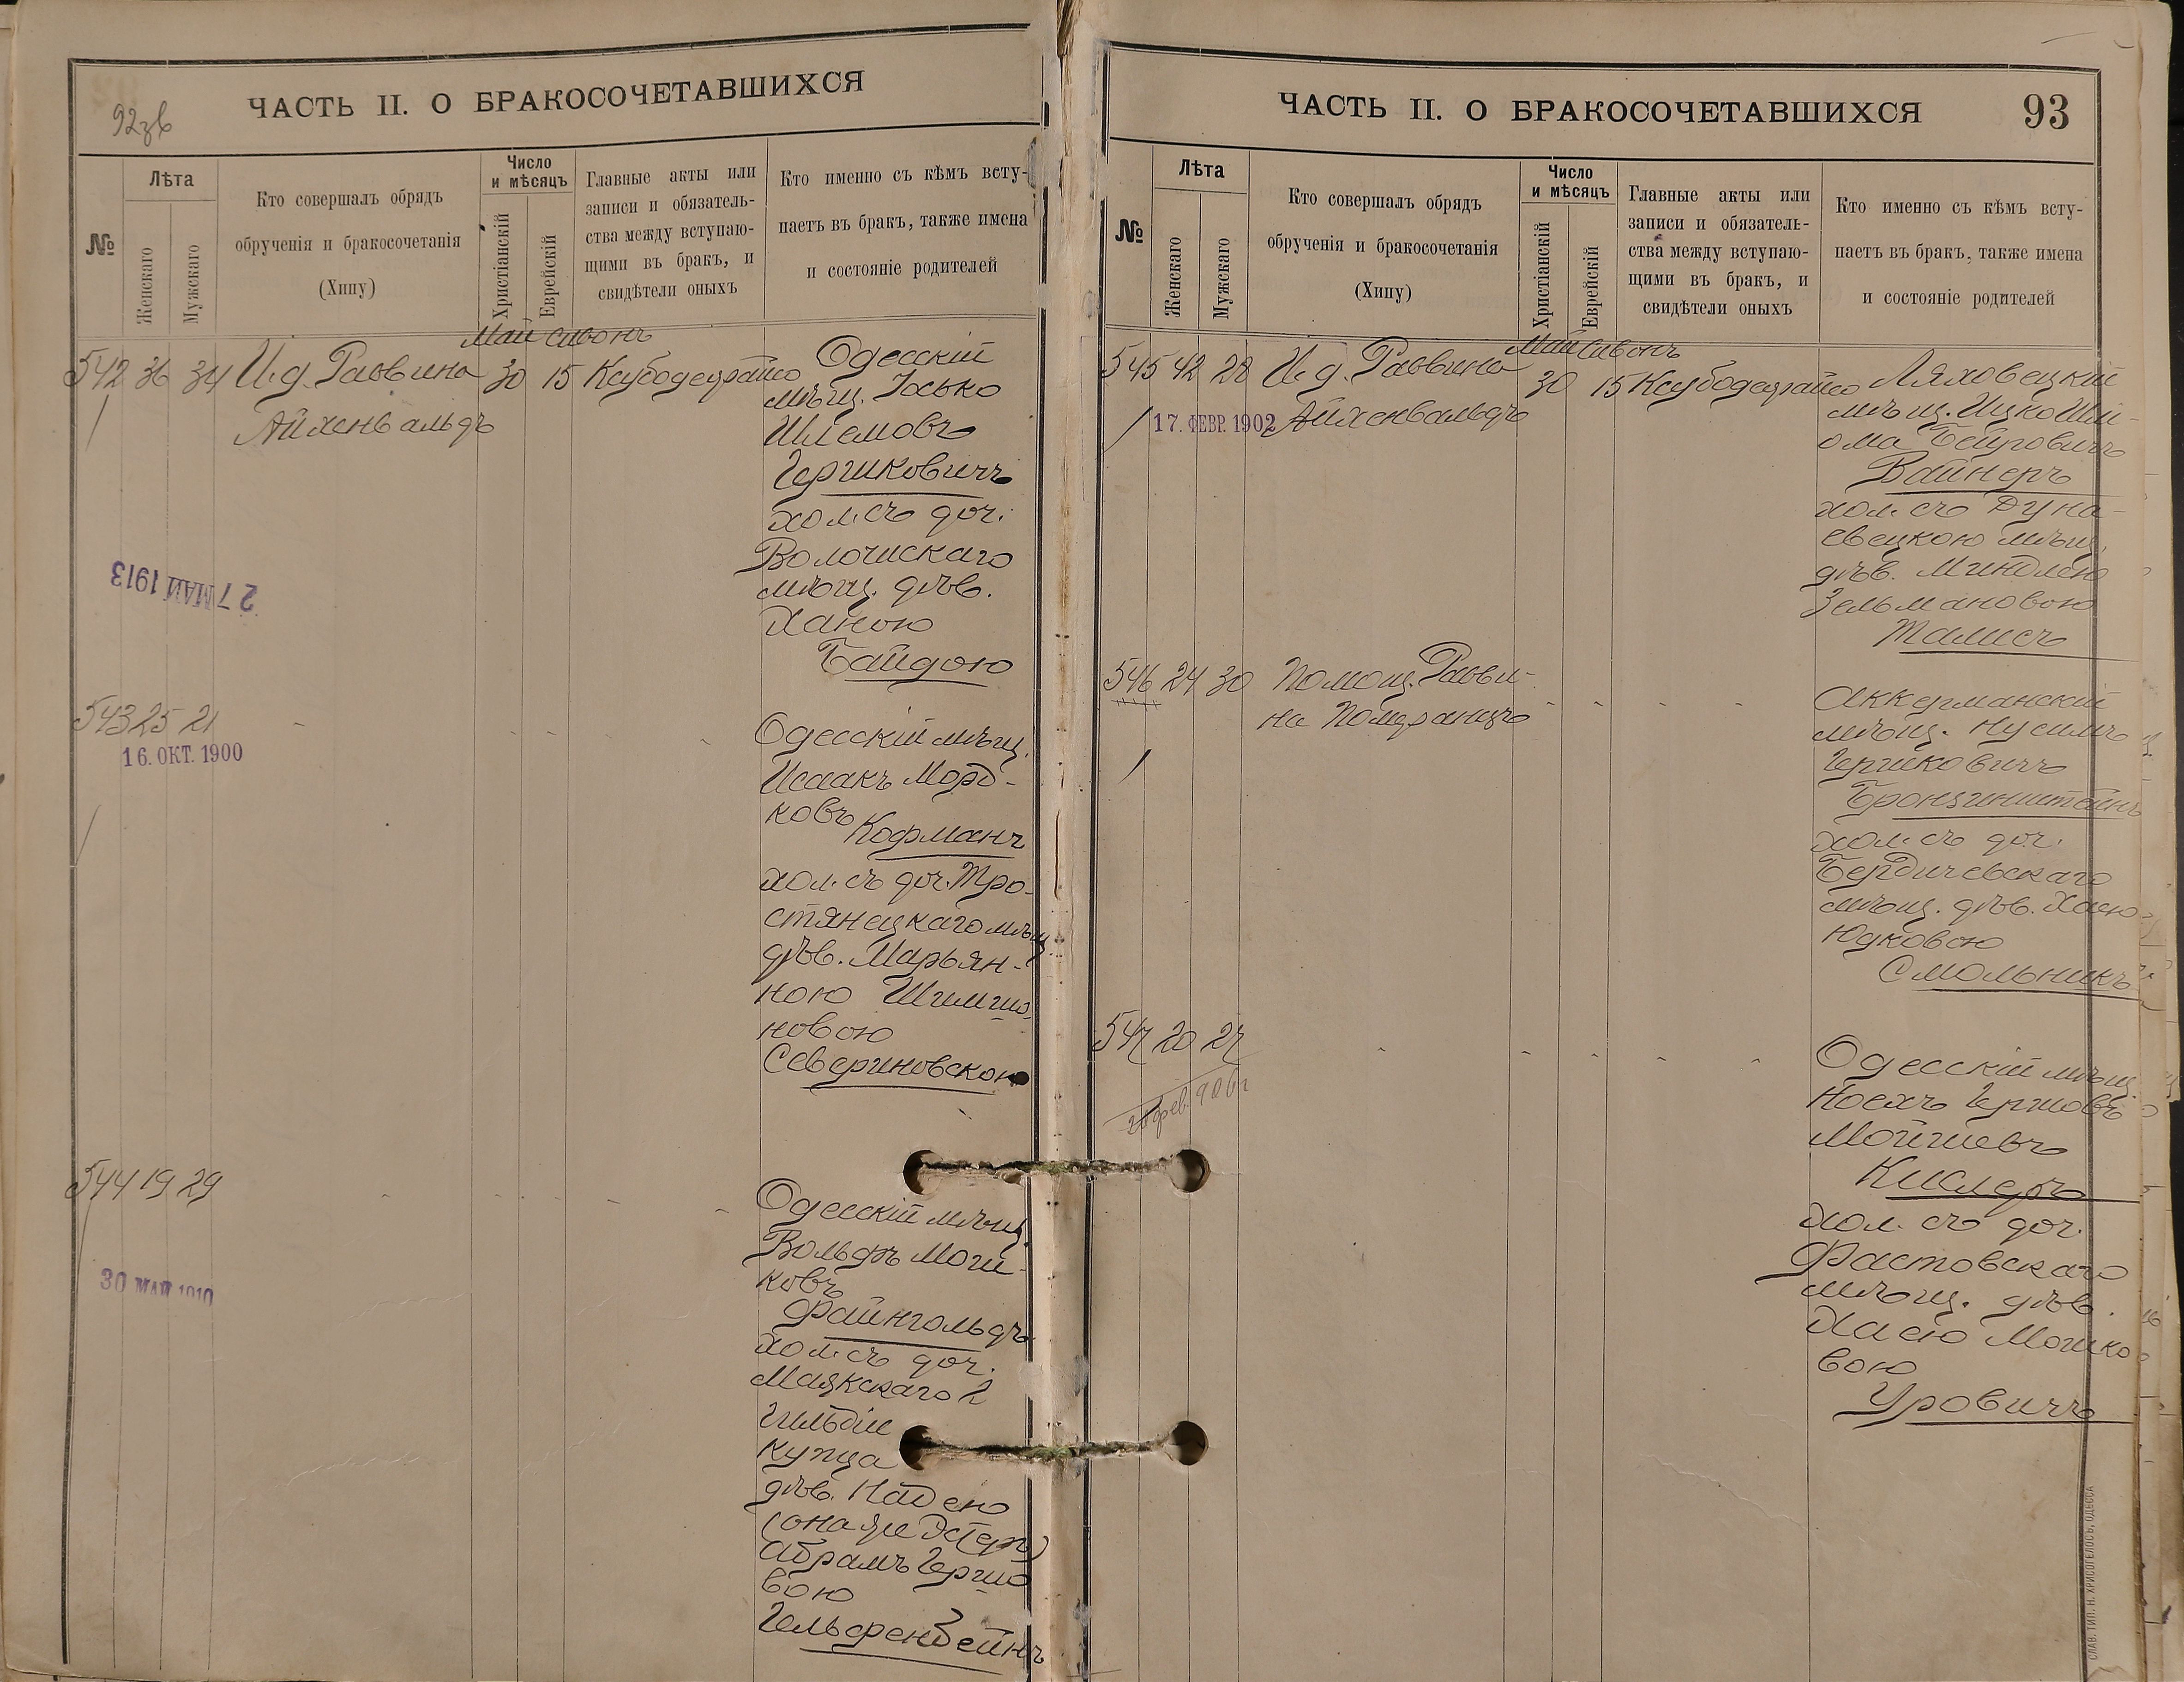 92зв
ЧАСТЬ II. О БРАКОСОЧЕТАВШИХСЯ
№
Лѣта
Женскаго
Мужскаго
Кто совершалъ обрядъ
обрученія и бракосочетанія
(Хипу)
Число
и мѣсяцъ
Христіанскій
Еврейскій
Главные акты или
записи и обязатель-
ства между вступаю-
щими въ бракъ, и
свидѣтели оныхъ
Кто именно съ кѣмъ всту-
паетъ въ бракъ, также имена
и состояніе родителей
Май Сивонъ
542 36 34 И.д. Раввина 30 15
Айхенвальдъ
Одесскій
мѣщ. Іосько
Шлемовъ
Гершковичъ
хол. съ доч.
Волочискаго
мѣщ. дѣв.
Ханою
Байдою
27 МАЙ 1913
543 25 21
16. ОКТ. 1900
Одесскій мѣщ.
Исаакъ Морд-
ковъ Кофманъ
хол. съ доч. Тро-
стянецкаго мѣщ.
дѣв. Марьян-
ною Шимшо-
новою
Севериновскою
544 19 29
30 МАЙ 1910
Одесскій мѣщ.
Вольфъ Мош-
ковъ
Файнгольдъ
хол. съ доч.
Маякскаго 2
гильдіи
купца
дѣв. Надею
(она же Эстеръ)
Абрамъ Гершо
вою
Гельфенбейнъ
ЧАСТЬ II. О БРАКОСОЧЕТАВШИХСЯ
93
№
Лѣта
Женскаго
Мужскаго
Кто совершалъ обрядъ
обрученія и бракосочетанія
(Хипу)
Число
и мѣсяцъ
Христіанскій
Еврейскій
Главные акты или
записи и обязатель-
ства между вступаю-
щими въ бракъ, и
свидѣтели оныхъ
Кто именно съ кѣмъ всту-
паетъ въ бракъ, также имена
и состояніе родителей
Май Сивонъ
545 42 28 И.д. Раввина 30 15
17. ФЕВР. 1902 Айхенвальдъ
Ляховецкій
мѣщ. Ицко Шл-
ома Беировичъ
Вайнеръ
хол. съ Дуна-
евецкою мѣщ.
дѣв. Миндлею
Зельмановою
Талисъ
546 24 30 Помощ. Равви-
на Померанцъ
Аккерманскій
мѣщ. Нусимъ
Гершковичъ
Бронзинштейнъ
хол. съ доч.
Бердичевскаго
мѣщ. дѣв. Хаею
Юдковою
Смольникъ
547 20 27
Одесскій мѣщ.
Ноехъ Гершовъ
Мойшевъ
Кислеръ
хол. съ доч.
Фастовскаго
мѣщ. дѣв.
Хаею Мошко
вою
Уровичъ
СЛАВ. ТИП. Н. ХРИСОГЕЛОСЪ, ОДЕССА